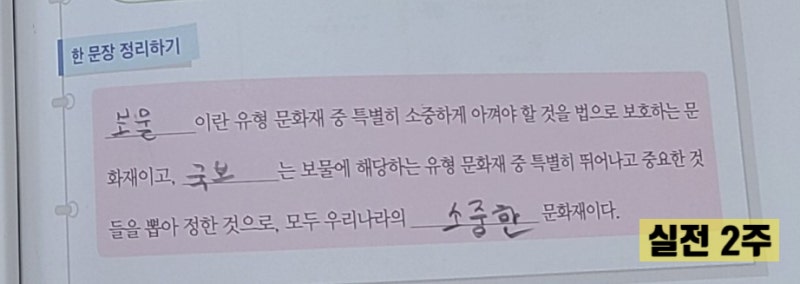 한 문장 정리하기
보물 이란 유형 문화재 중 특별히 소중하게 아껴야 할 것을 법으로 보호하는 문
화재이고, 국보 는 보물에 해당하는 유형 문화재 중 특별히 뛰어나고 중요한 것
들을 뽑아 정한 것으로, 모두 우리나라의 소중한 문화재이다.
실전 2주